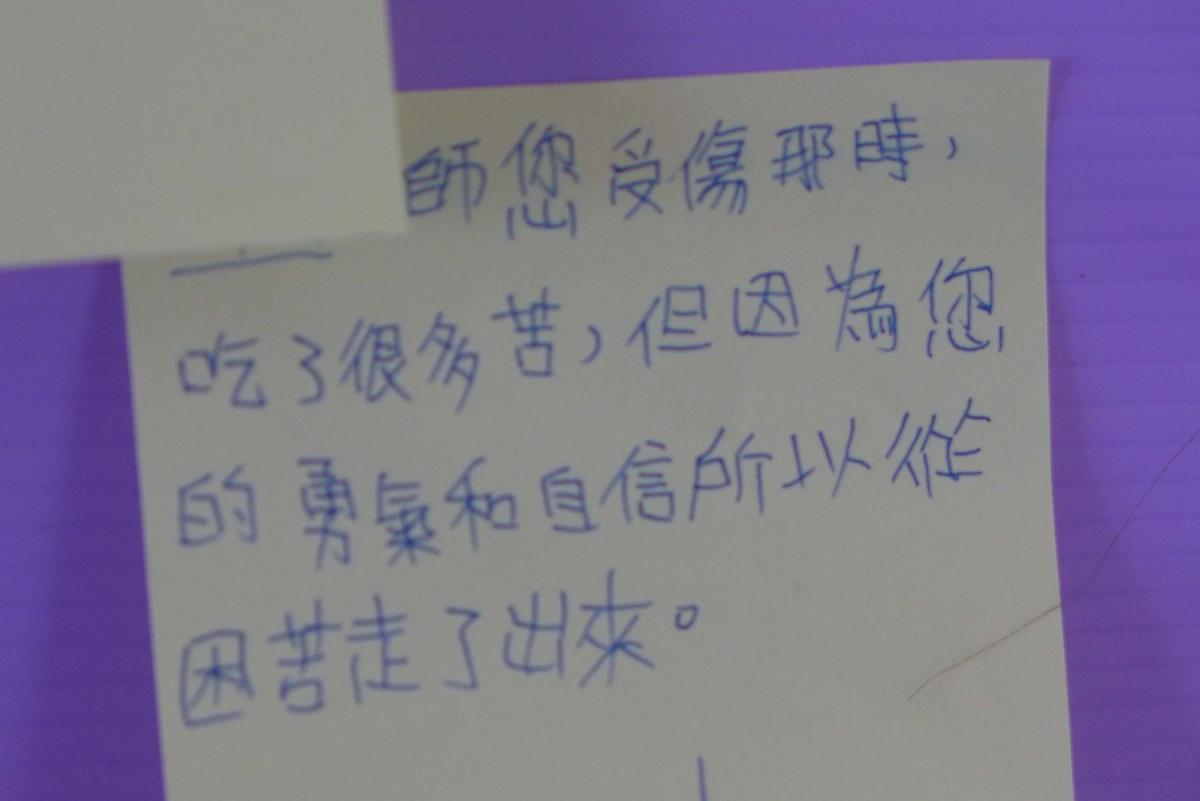 師您受傷那時，
吃了很多苦，但因為您
的勇氣和自信所以從
困苦走了出來。